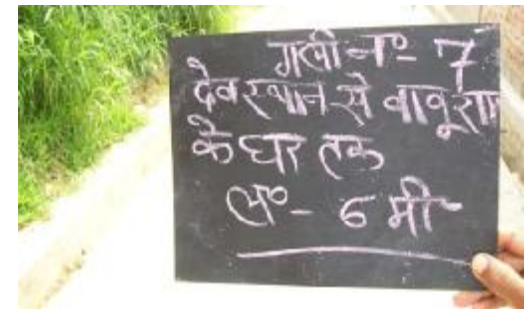 गली न०- 7
देव स्थान से बाबूराम
के घर तक
ल०- 6 मी